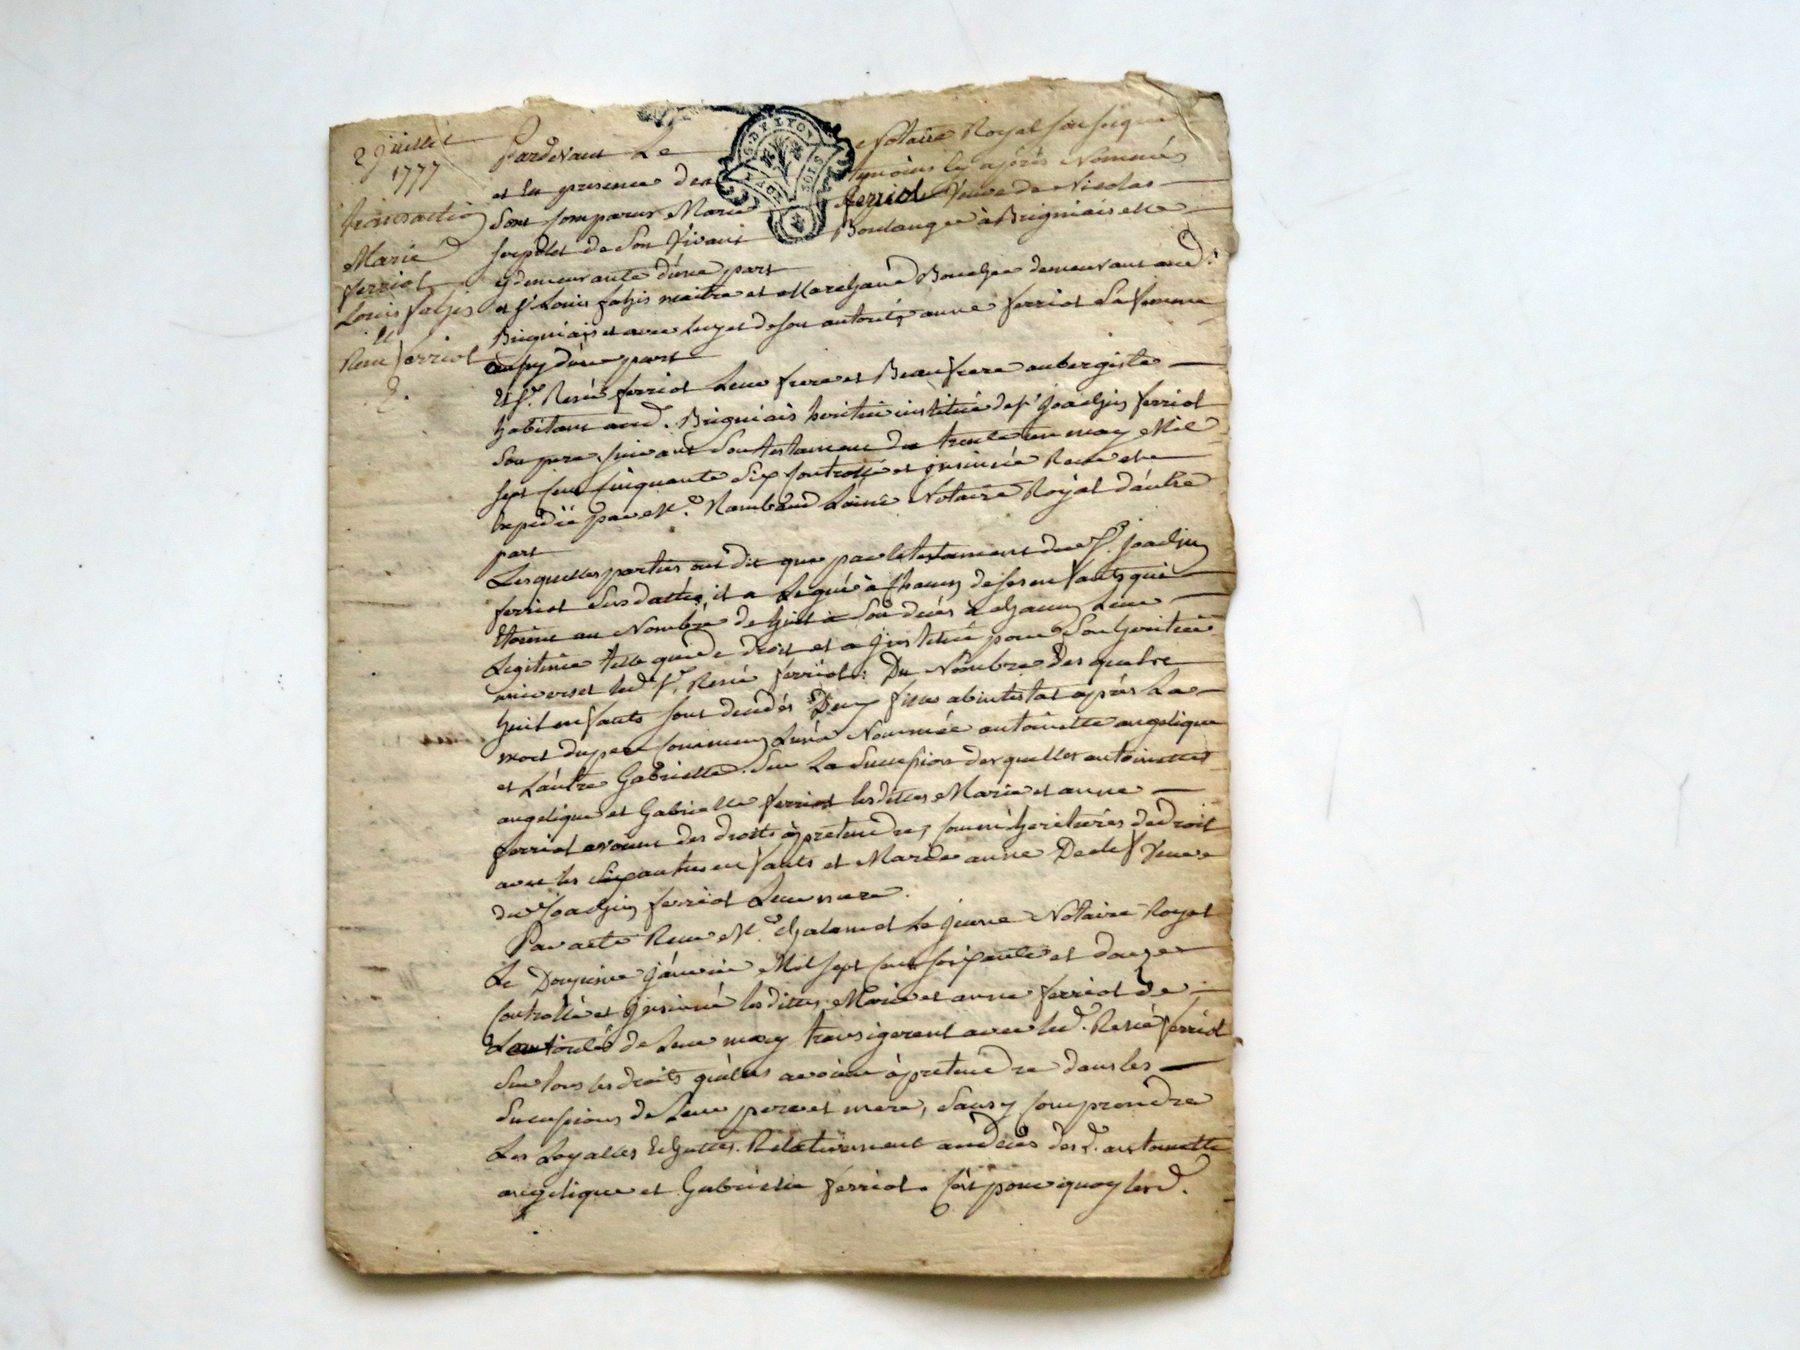 2 juillet
1777
transaction
Marie
ferriot
Louis falgis
et
René ferriot
G. DE LYON
SOLS
Pardevant Le Notaire Royal soussigné
et En presence des temoins cy après Nommés
Sont comparus Marie ferriot Veuve de Nicolas
de Son Vivant Boulanger à Brigniais elle
y demeurante d'une part
et Sr. Louis falgis maitre et Marchand Boucher demeurant aud.
Brigniais et avec luy et de son autorité anne ferriot Sa femme
aussy d'une part
Et Sr. René ferriot Leur frere et Beaufrere aubergiste
habitant aud. Brigniais heritier institué de Sr Joachin ferriot
Son pere, suivant Son testament du trente un may Mil
Sept Cent Cinquante Six Controllé et jnsinué Recu et
Expedié par Me. Rambaud Lainé Notaire Royal d'autre
part
Lesquelles parties ont dit que par le testament dud. Sr. Joachin
ferriot Susdatté, il a Legué à Chacun de ses enfants qui
Etoient au Nombre de huit à Son deces à chacun Leur
Legitime telle que de droit et a jnstitué pour Son heritier
universel led. Sr. René ferriot: Du Nombre des quels
huit enfants sont decedés Deux filles abintestat après La
mort du pere commun, L'une Nommée antoinette angelique
et L'autre Gabrielle. Sur La Succession des quelles antoinette
angelique et Gabrielle ferriot lesdittes Marie et anne
ferriot avoient des droits à pretendre, comme heritieres de droit
avec les Six autres enfants et Marie anne Veuve
du Sr Joachin ferriot Leur mere.
Par acte Recu Me. Le jeune Notaire Royal
Le Douzieme janvier Mil Sept Cent Soixante et douze
Controllé et jnsinué lesdittes Marie et anne ferriot de
L'autorité de Leur mary transigerent avec led. René ferriot
Sur tous les droits qu'elles avoient à pretendre dans les
Successions de Leur pere et mere, Sans y Comprendre
Les Loyalles Echuttes. Relativement au deces desd. antoinette
angelique et Gabrielle ferriot. C'est pourquoy lesd.